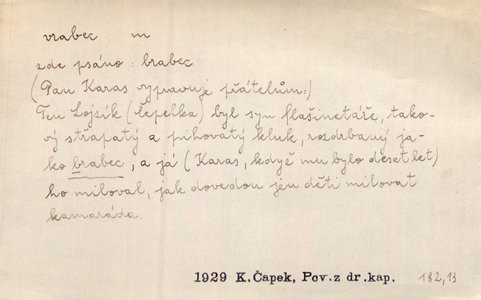 vrabec m
zde psáno: brabec
(Pan Karas vypravuje přátelům:)
Ten Lojzík (Čepelka) byl syn flašinetáře, tako-
vý střapatý a pihovatý kluk, rozdrbaný ja-
ko brabec, a já (Karas, když mu bylo deset let)
ho miloval, jak dovedou jen děti milovat
kamaráda.
1929 K.Čapek, Pov.z dr.kap. 182,13